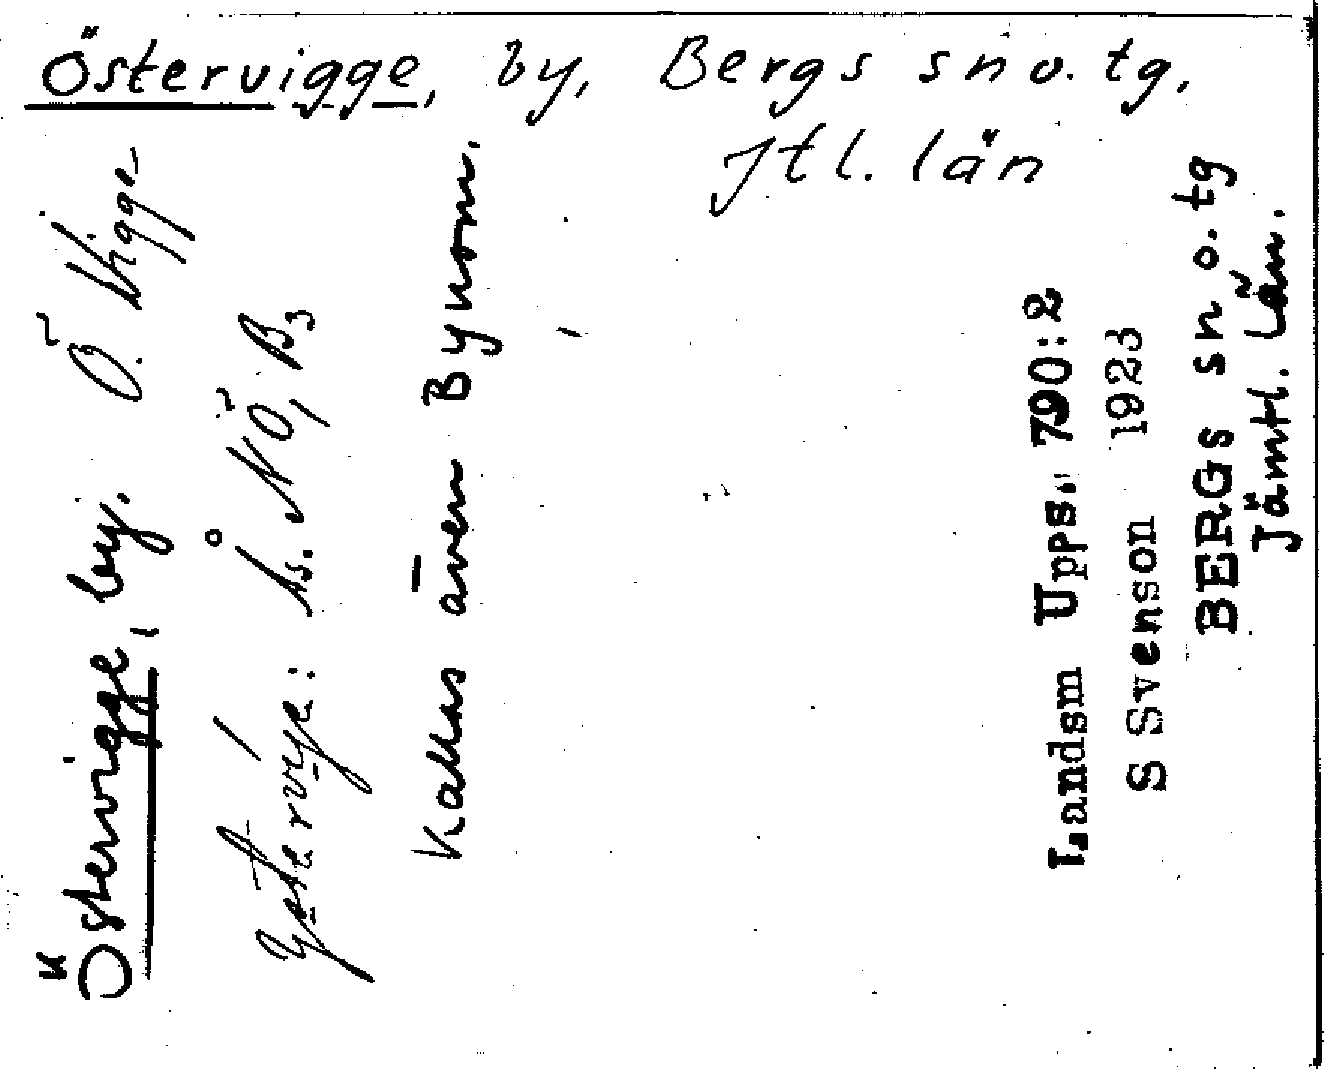 Östervigge, by, Bergs sn o. tg,
Jtl. län
Östervigge, by. Ö. Vigge
Ås. NÖ, B3
Kallas även Bynom.
Landsm Upps. 790:2
S Svenson 1923
BERGS sn o. tg
Jämtl. Län.